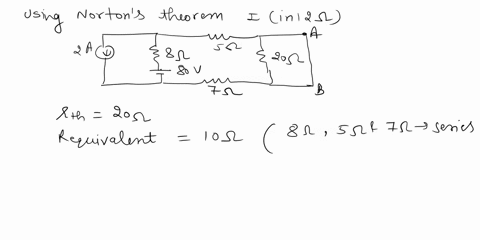 Using Norton's theorem I (in 12Ω)
A
5Ω
2A
8Ω
20Ω
80V
7Ω
B
rth = 20Ω
Requivalent = 10Ω ( 8Ω, 5Ω & 7Ω → series